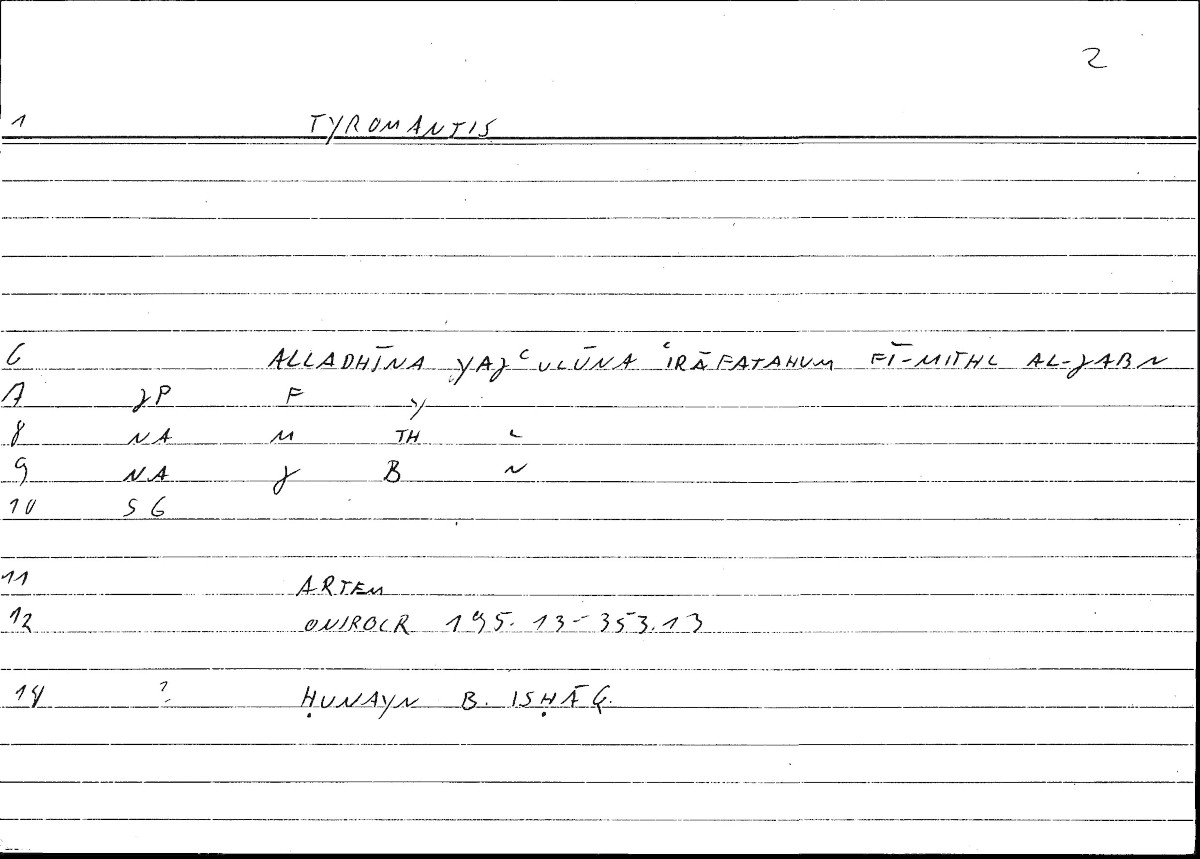 2
1 TYROMANTIS
6 ALLADHĪNA YAJʿULŪNA ʿIRĀFATAHUM FĪ-MITHL AL-JABN
7 JP F Y
8 NA M TH L
9 NA J B N
10 SG
11 ARTEM
12 ONIROCR 195.13-353.13
14 ? ḤUNAYN B. ISḤĀQ